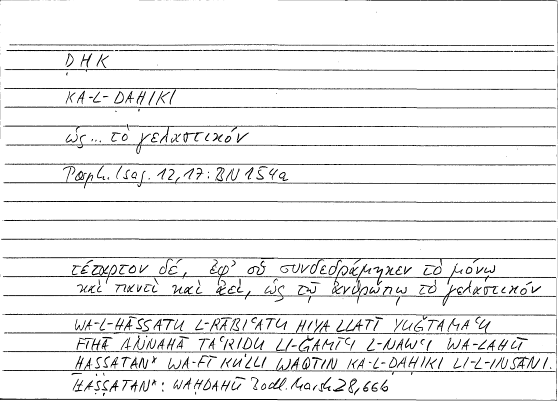 ḌḤK
KA-L-ḌAḤIKI
ὡς... τὸ γελαστικόν
Porph. Isag. 12,17: BN 154a
τέταρτον δέ, ἐφ' οὗ συνδεδράμηκεν τὸ μόνῳ
καὶ παντὶ καὶ ἀεί, ὡς τῷ ἀνθρώπῳ τὸ γελαστικόν
WA-L-ḪĀṢṢATU L-RĀBIʿATU HIYA LLATĪ YUǦTAMAʿU
FĪHĀ ANNAHĀ TAʿRIḌU LI-ǦAMĪʿI L-NAWʿI WA-LAHŪ
ḪĀṢṢATAN* WA-FĪ KULLI WAQTIN KA-L-ḌAḤIKI LI-L-INSĀNI.
ḪĀṢṢATAN*: WAḤDAHŪ Bodl. Marsh 28,66b